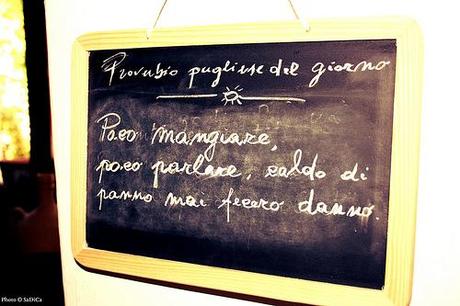 Proverbio pugliese del giorno
Poco mangiare,
poco parlare, caldo di
panno mai fecero danno.
Photo © SaDiCa